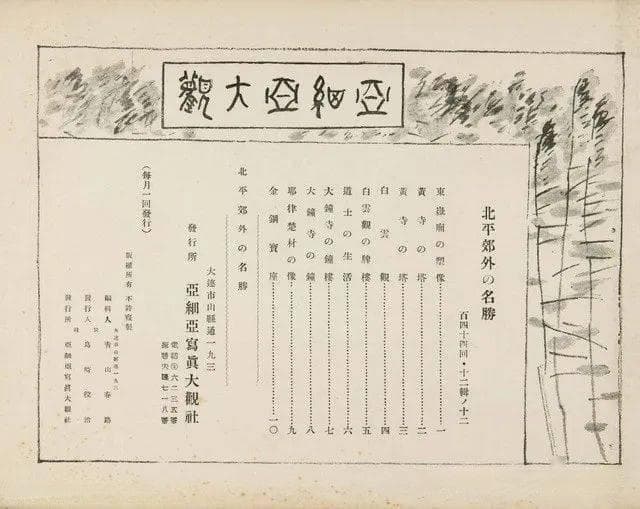 亞細亞大觀
北平郊外の名勝
百四十四回・十二輯ノ十二
東嶽廟の塑像……一
黃寺の塔……二
黃寺の塔……三
白雲觀……四
白雲觀の牌樓……五
道士の生活……六
大鐘寺の鐘樓……七
大鐘寺の鐘……八
耶律楚材の像……九
金鋼寶座……一〇
北平郊外の名勝
大連市山縣通一九三
發行所 亞細亞寫眞大觀社
電話②六二三五番
振替大連七一八番
(每月一回發行)
版權所有 不許複製
大連市山縣通一九三
編輯人 靑山春路
發行人 島崎役治
發行所 亞細亞寫眞大觀社